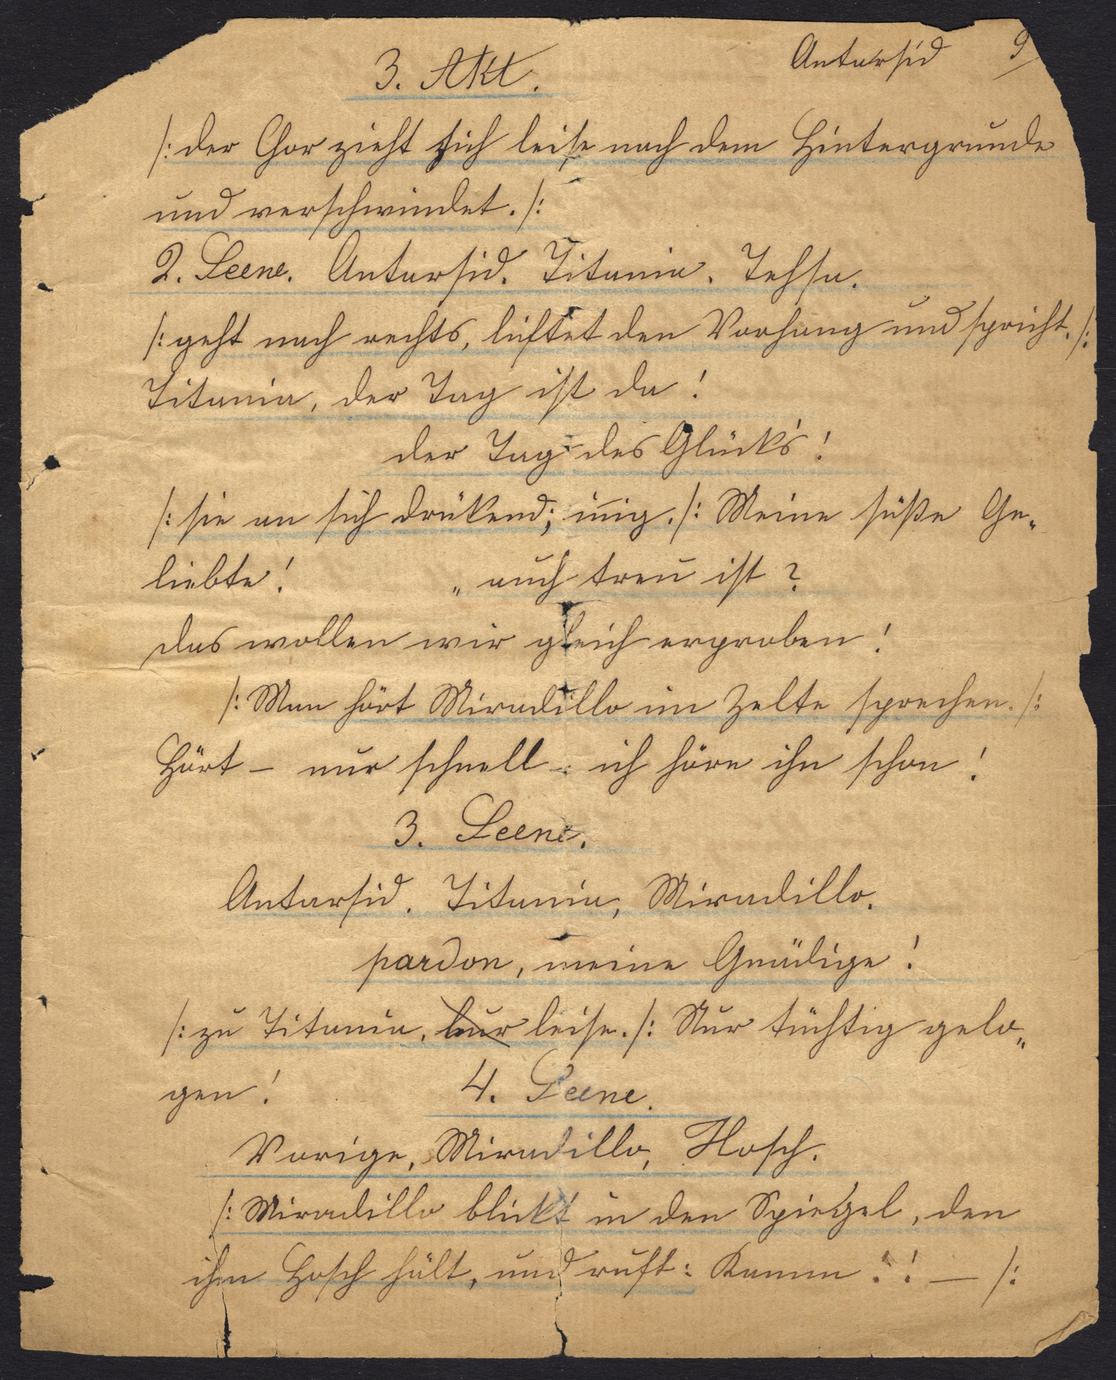 Antarsid 9
3. Akt.
/: der Chor zieht sich leise nach dem Hintergrunde
und verschwindet. /:
2. Scene. Antarsid. Titania. Tehsa.
/: geht nach rechts, lüftet den Vorhang und spricht. /:
Titania, der Tag ist da!
der Tag des Glück's!
/: sie an sich drükend; inig. /: Meine süße Ge„
liebte! „ auch treu ist?
das wollen wir gleich erproben!
/: Man hört Miradillo im Zelte sprechen. /:
Hört – nur schnell – ich höre ihn schon!
3. Scene.
Antarsid. Titania, Miradillo.
pardon, meine Gnädige!
/: zu Titania, leise. /: Nur tüchtig gelo„
gen! 4. Scene.
Vorige, Miradillo, Hosch.
/: Miradillo blickt in den Spiegel, den
ihm Hosch hält, und ruft: Kamm!! — /: